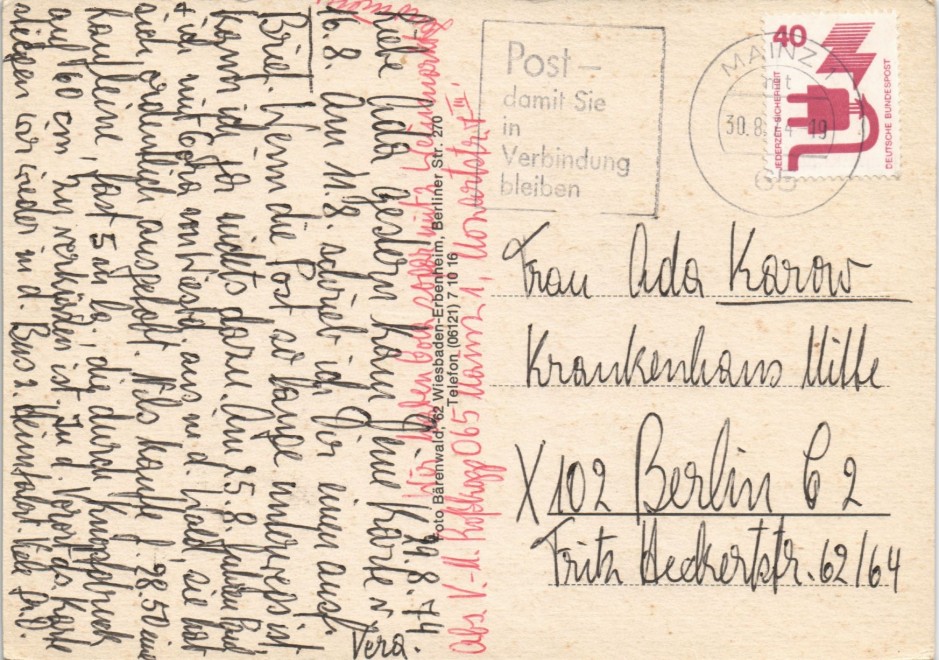 Post –
damit Sie
in
Verbindung
bleiben
MAINZ 1
30.8. 74 19
65
40
JEDERZEIT SICHERHEIT
DEUTSCHE BUNDESPOST
Frau Ada Karow
Krankenhaus Mitte
X 102 Berlin C 2
Fritz Heckertstr. 62/64
Foto Bärenwald, 62 Wiesbaden-Erbenheim, Berliner Str. 270
Telefon (06121) 7 10 16
Abs V.-M. 065 Mainz 1, Mozartstr. III
Wir haben
29.8.74
Liebe Ada, gestern kam Deine Karte v.
16.8. Am 11.8. schrieb ich Dir einen ausf.
Brief. Wenn die Post so lange unterweg ist,
kann ich ja nichts dazu. Am 25.8. fuhren Paul
+ ich mit von Wiesb. aus und Paul sie hat
sich ordentlich ausgetobt. Als kaufte f. 28.50 eine
Kaufleine, fast 5 m lg., die durch Knopfdruck
auf 60 cm zu verkürzen ist. In d. Vorortas Karte
stiegen wir wieder in d. Bus z. Heimfahrt Viele Gr. D.
Vera.